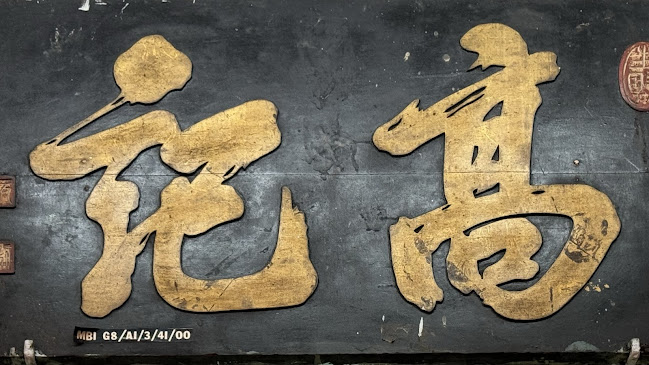 高記
MBI G8/A1/3/41/00